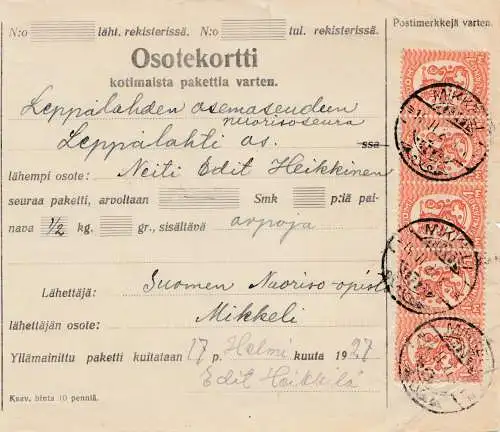 N:o läht. rekisterissä. N:o tul. rekisterissä.
Postimerkkejä varten.
Osotekortti
kotimaista pakettia varten.
Leppälahden asemaseudun
nuorisoseura
Leppälahti as. ssa
lähempi osote: Neiti Edit Heikkinen
seuraa paketti, arvoltaan Smk p:lä pai-
nava 1/2 kg. gr., sisältävä arpoja
Lähettäjä: Suomen Nuoriso-opist
lähettäjän osote: Mikkeli
Yllämainittu paketti kuitataan 17 p. Helmi kuuta 1927
Edit Heikkilä
Kaav. hinta 10 penniä.
MIKKELI
MIKKELI
MIKKELI